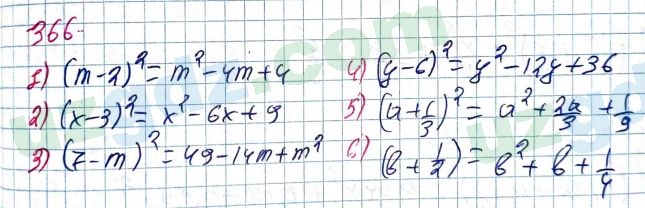 366.
1) (m-2)² = m² - 4m + 4
2) (x-3)² = x² - 6x + 9
3) (7-m)² = 49 - 14m + m²
4) (y-6)² = y² - 12y + 36
5) (a + 1/3)² = a² + 2a/3 + 1/9
6) (b + 1/2) = b² + b + 1/4